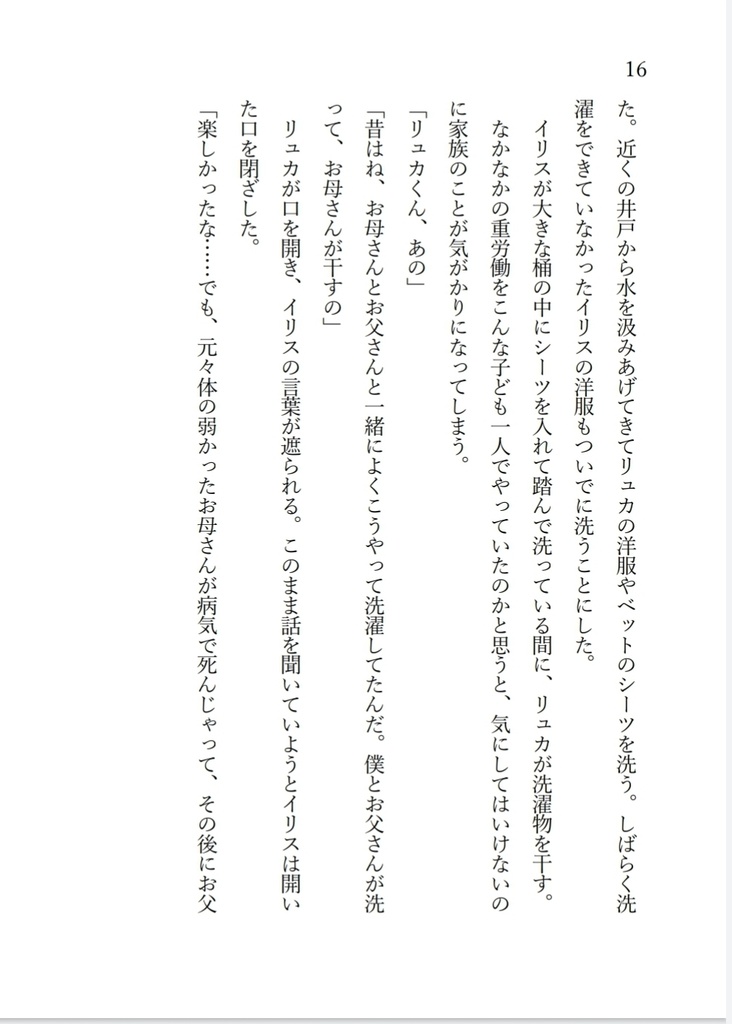 16
た。近くの井戸から水を汲みあげてきてリュカの洋服やベットのシーツを洗う。しばらく洗
濯をできていなかったイリスの洋服もついでに洗うことにした。
イリスが大きな桶の中にシーツを入れて踏んで洗っている間に、リュカが洗濯物を干す。
なかなかの重労働をこんな子ども一人でやっていたのかと思うと、気にしてはいけないの
に家族のことが気がかりになってしまう。
「リュカくん、あの」
「昔はね、お母さんとお父さんと一緒によくこうやって洗濯してたんだ。僕とお父さんが洗
って、お母さんが干すの」
リュカが口を開き、イリスの言葉が遮られる。このまま話を聞いていようとイリスは開い
た口を閉ざした。
「楽しかったな……でも、元々体の弱かったお母さんが病気で死んじゃって、その後にお父